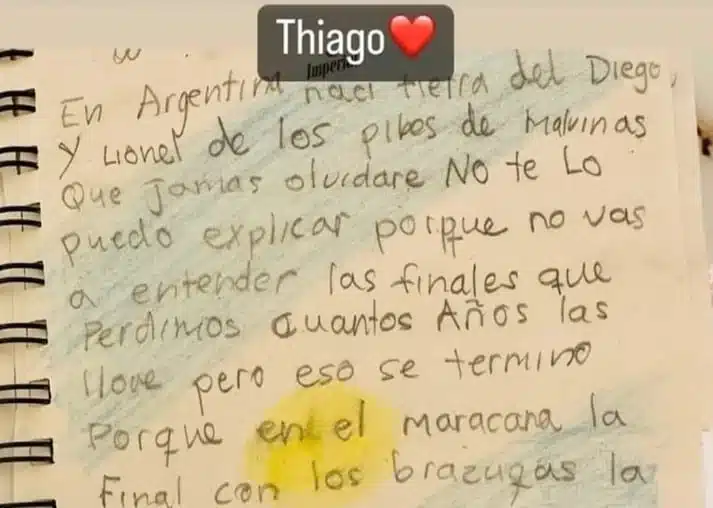 Thiago❤️
Imperi
En Argentina naci tierra del Diego,
Y Lionel de los pibes de Malvinas
Que Jamas olvidare NO te Lo
puedo explicar porque no vas
a entender las finales que
Perdimos cuantos Años las
llore pero eso se termino
Porque en el maracana la
Final con los brazugas la